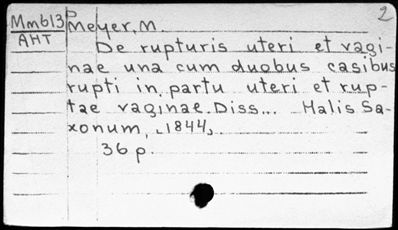 2
Mm613p Meyer, M.
AHT
De rupturis uteri et vagi-
nae una cum duobus casibus
rupti in partu uteri et rup-
tae vaginae. Diss... Halis Sa-
xonum, ⌞1844⌟
36 p.